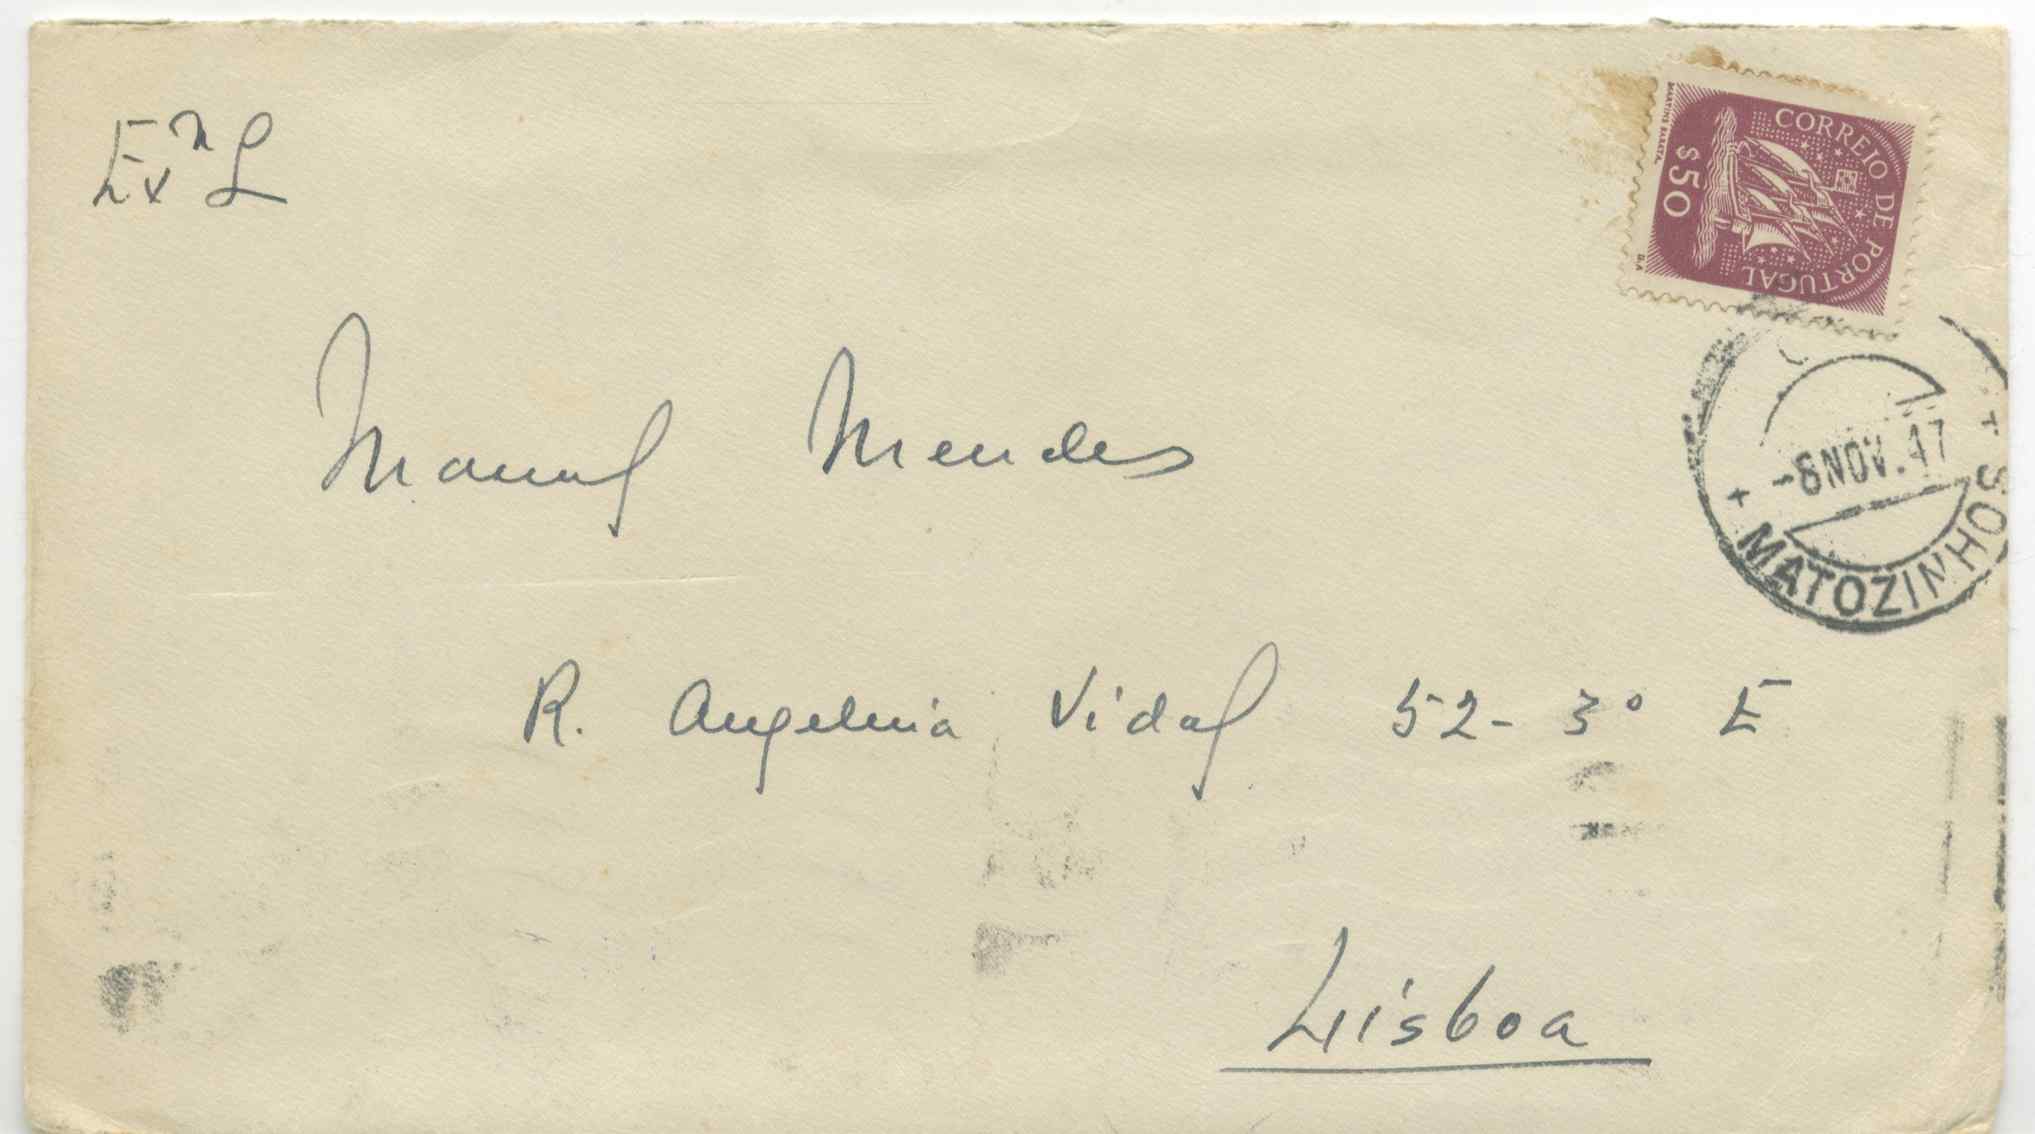 Exm S
CORREIO DE PORTUGAL
$50
MARTINS BARATA.
Manuel Mendes
-8 NOV. 47
MATOZINHOS
R. Angelina Vidal 52 - 3º E
Lisboa